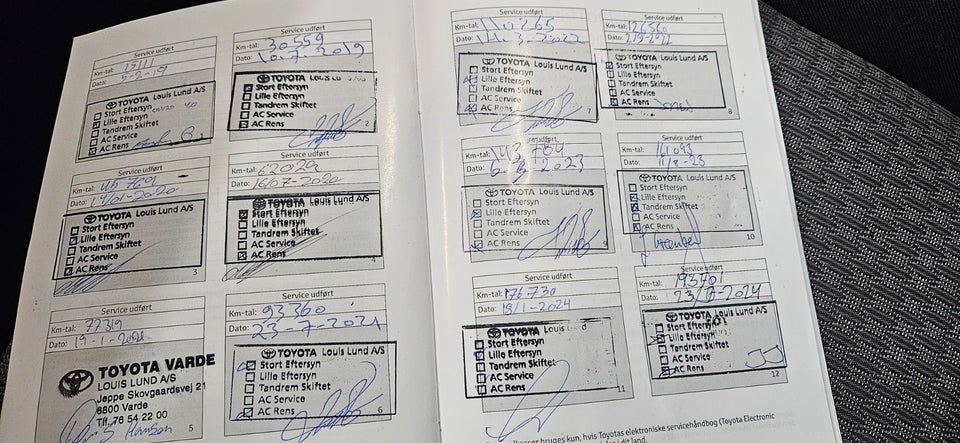 Service udført
Km-tal: 15111
Dato: 5-2-19
TOYOTA Louis Lund A/S
Stort Eftersyn
Lille Eftersyn
Tandrem Skiftet
AC Service
AC Rens
1
Service udført
Km-tal: 30559
Dato: 10-7-2019
TOYOTA Louis Lund A/S
Stort Eftersyn
Lille Eftersyn
Tandrem Skiftet
AC Service
AC Rens
2
Service udført
Km-tal:
Dato: 14/01-2020
TOYOTA Louis Lund A/S
Stort Eftersyn
Lille Eftersyn
Tandrem Skiftet
AC Service
AC Rens
3
Service udført
Km-tal: 62020
Dato: 16/07-2020
TOYOTA Louis Lund A/S
Stort Eftersyn
Lille Eftersyn
Tandrem Skiftet
AC Service
AC Rens
4
Service udført
Km-tal: 77319
Dato: 19-1-2021
TOYOTA VARDE
LOUIS LUND A/S
Jeppe Skovgaardsvej 21
6800 Varde
Tlf. 76 54 22 00
5
Service udført
Km-tal: 93360
Dato: 23-7-2021
TOYOTA Louis Lund A/S
Stort Eftersyn
Lille Eftersyn
Tandrem Skiftet
AC Service
AC Rens
6
Service udført
Km-tal: 110265
Dato: 14-3-2022
TOYOTA Louis Lund A/S
Stort Eftersyn
Lille Eftersyn
Tandrem Skiftet
AC Service
AC Rens
7
Service udført
Km-tal: 126560
Dato:
TOYOTA Louis Lund A/S
Stort Eftersyn
Lille Eftersyn
Tandrem Skiftet
AC Service
AC Rens
8
Service udført
Km-tal: 143784
Dato: 6-3-2023
TOYOTA Louis Lund A/S
Stort Eftersyn
Lille Eftersyn
Tandrem Skiftet
AC Service
AC Rens
9
Service udført
Km-tal: 161093
Dato: 11/8-23
TOYOTA Louis Lund A/S
Stort Eftersyn
Lille Eftersyn
Tandrem Skiftet
AC Service
AC Rens
10
Service udført
Km-tal: 176730
Dato: 18/1-2024
TOYOTA Louis
Stort Eftersyn
Lille Eftersyn
Tandrem Skiftet
AC Service
AC Rens
11
Service udført
Km-tal: 193701
Dato:
TOYOTA Louis Lund A/S
Stort Eftersyn
Lille Eftersyn
Tandrem Skiftet
AC Service
AC Rens
12
bruges kun, hvis Toyotas elektroniske servicehåndbog (Toyota Electronic
i dit land.